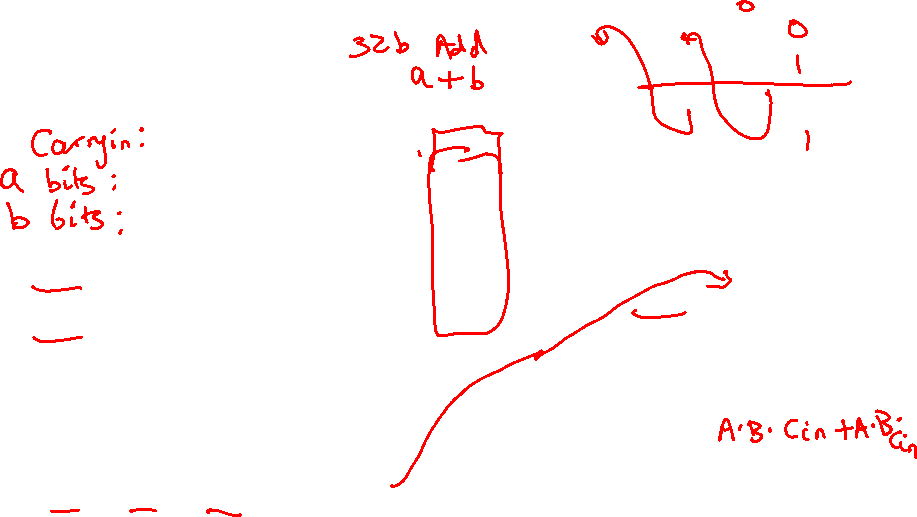 32b Add
a+b
0
0
1
1
Carryin:
a bits:
b bits:
A·B·Cin+A·B·Cin